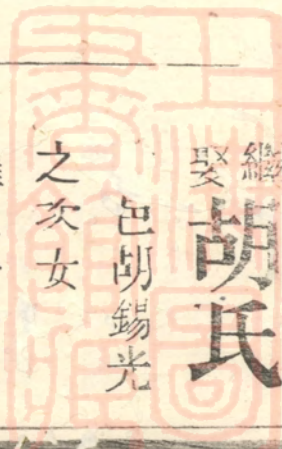 繼娶胡氏
邑胡錫光
之次女